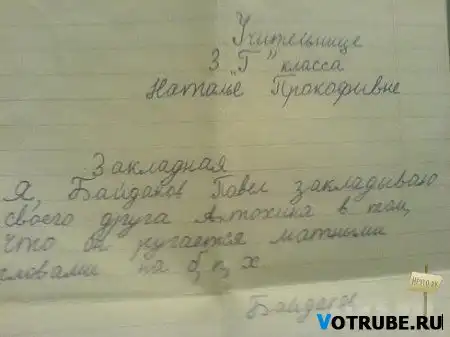 Учительнице
3 "Г" класса
Наталье Прокофивне
Закладная
Я, Байдаков Павел закладываю
своего друга Антохина в том,
что он ругается матными
словами на б, п, х
Байдаков
VOTRUBE.RU